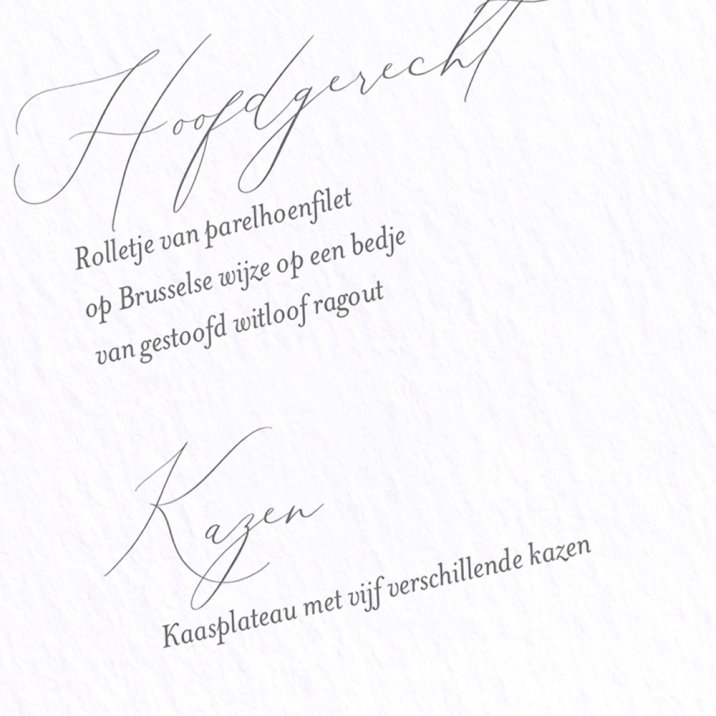 Hoofdgerecht
Rolletje van parelhoenfilet
op Brusselse wijze op een bedje
van gestoofd witloof ragout
Kazen
Kaasplateau met vijf verschillende kazen